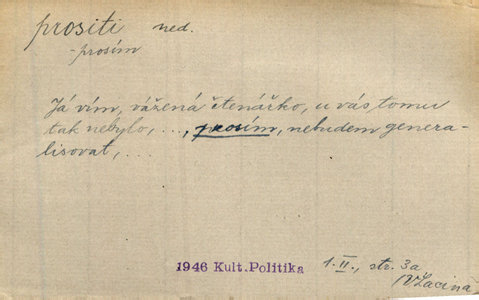 prositi ned.
-prosím
Já vím, vážená čtenářko, u vás tomu
tak nebylo, ..., prosím, nebudem genera-
lisovat, ...
1946 Kult.Politika
1.II., str. 3a
VLacina